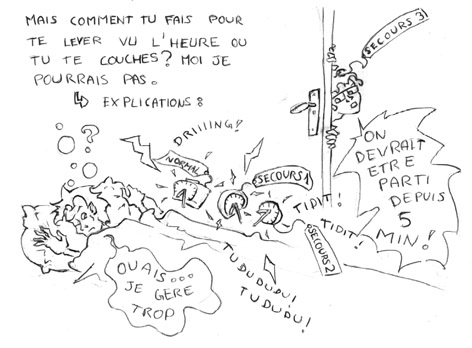 MAIS COMMENT TU FAIS POUR
TE LEVER VU L'HEURE OU
TU TE COUCHES? MOI JE
POURRAIS PAS.
↳ EXPLICATIONS:
SECOURS 3
DRIIIING!
NORMAL
SECOURS 1
?
ON
DEVRAIT
ETRE
PARTI
DEPUIS
5
MIN!
TIDIT!
TIDIT!
SECOURS 2
TUDUDUDU!
TUDUDUDU!
OUAIS...
JE GERE
TROP